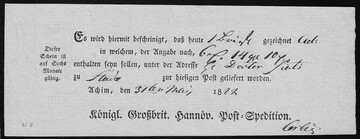 Es wird hiermit bescheinigt, daß heute 1 Brief gezeichnet
in welchem, der Angabe nach,
Dieser
Schein ist
auf Sechs
Monate
gültig.
enthalten seyn sollen, unter der Adresse Doctor
zu Stade zur hiesigen Post geliefert worden.
Achim, 31ten May 1822
Königl. Großbrit. Hannöv. Post-Spedition.